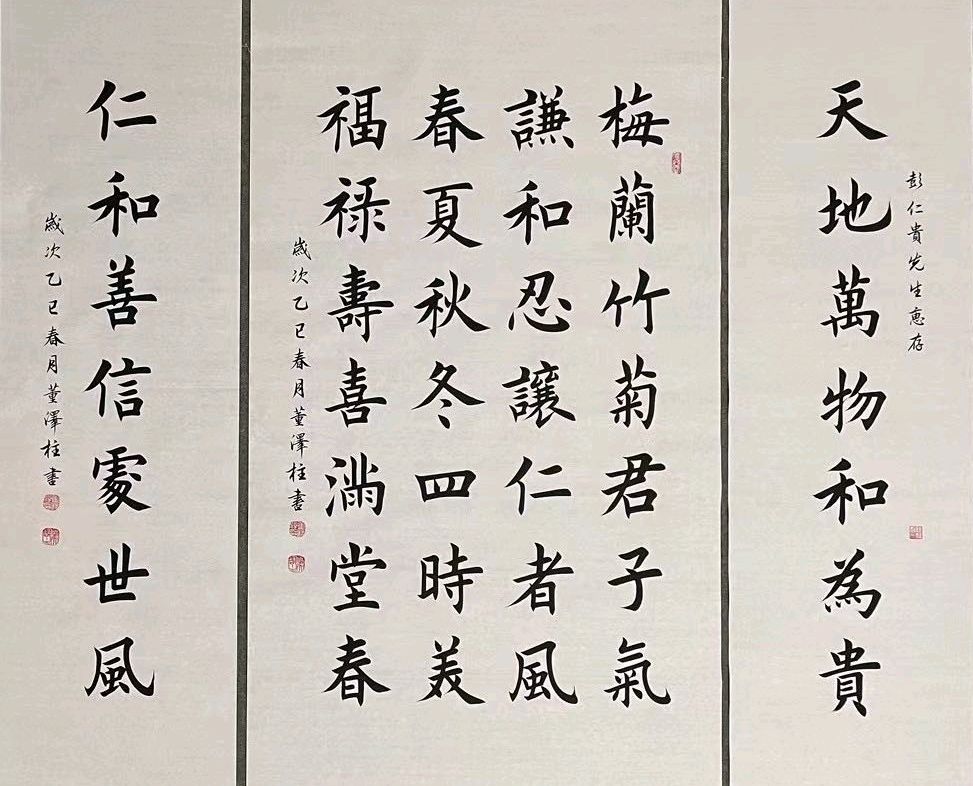 彭仁貴先生惠存
天地萬物和為貴
梅蘭竹菊君子氣
謙和忍讓仁者風
春夏秋冬四時美
福祿壽喜滿堂春
歲次乙巳春月董澤柱書
仁和善信處世風
歲次乙巳春月董澤柱書